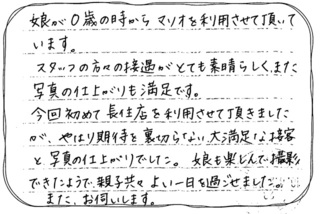 娘が0歳の時からマリオを利用させて頂いて
います。
スタッフの方々の接遇がとても素晴らしく、また
写真の仕上がりも満足です。
今回初めて長住店を利用させて頂きました
が、やはり期待を裏切らない大満足な接客
と写真の仕上がりでした。娘も楽しんで撮影
できたようで、親子共々よい一日を過ごせました。
また、お伺いします。